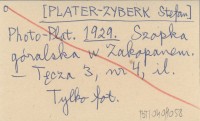 [PLATER-ZYBERK Stefan]
Photo-Plat. 1929. Szopka
góralska w Zakopanem.
— Tęcza 3, nr 4, il.
Tylko fot.